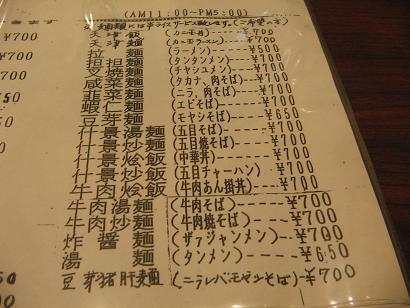 (AM11:00~PM5:00)
麺類には半ライスサービス致します。(ご希望の方)
天津飯(カニ玉丼)----¥700
天津麺(カニ玉ラーメン)---¥700
拉麺(ラーメン)------¥500
担担麺(タンタンメン)----¥700
叉焼麺(チャシュメン)----¥700
咸菜麺(タカナ、肉そば)---¥700
韮菜麺(ニラ、肉そば)----¥700
蝦仁麺(エビそば)-----¥700
豆芽麺(モヤシそば)----¥650
什景湯麺(五目そば)-----¥700
什景炒麺(五目焼そば)----¥700
什景烩飯(中華丼)------¥700
什景炒飯(五目チャーハン)---¥700
牛肉烩飯(牛肉あん掛丼)---¥700
牛肉湯麺(牛肉そば)-----¥700
牛肉炒麺(牛肉焼そば)----¥700
炸醤麺(ザァジャンメン)---¥700
湯麺(タンメン)-----¥650
豆芽猪肝麺(ニラレバモヤシそば)-¥700
¥700
¥700
700
650
50
00
50
00